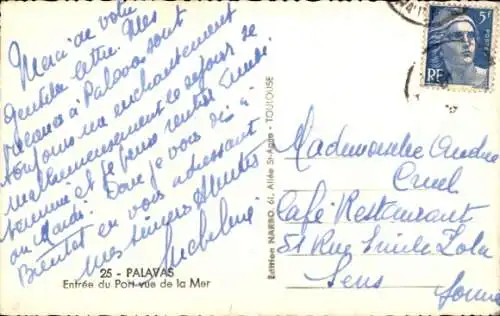 Merci de votre
gentille lettre. Mes
vacances à Palavas sont
toujours un enchantement
malheureusement le séjour se
termine et je pense rentrer Lundi
ou Mardi. Donc je vous dis à
Bientôt en vous adressant
mes sincères Amitiés
Micheline
25 - PALAVAS
Entrée du Port vue de la Mer
Edition NARBO, 61, Allée St-Agne - TOULOUSE
5F
POSTES
RF
Mademoiselle Andrée
Cruel
Café Restaurant
51 Rue Emile Zola
Sens
Yonne